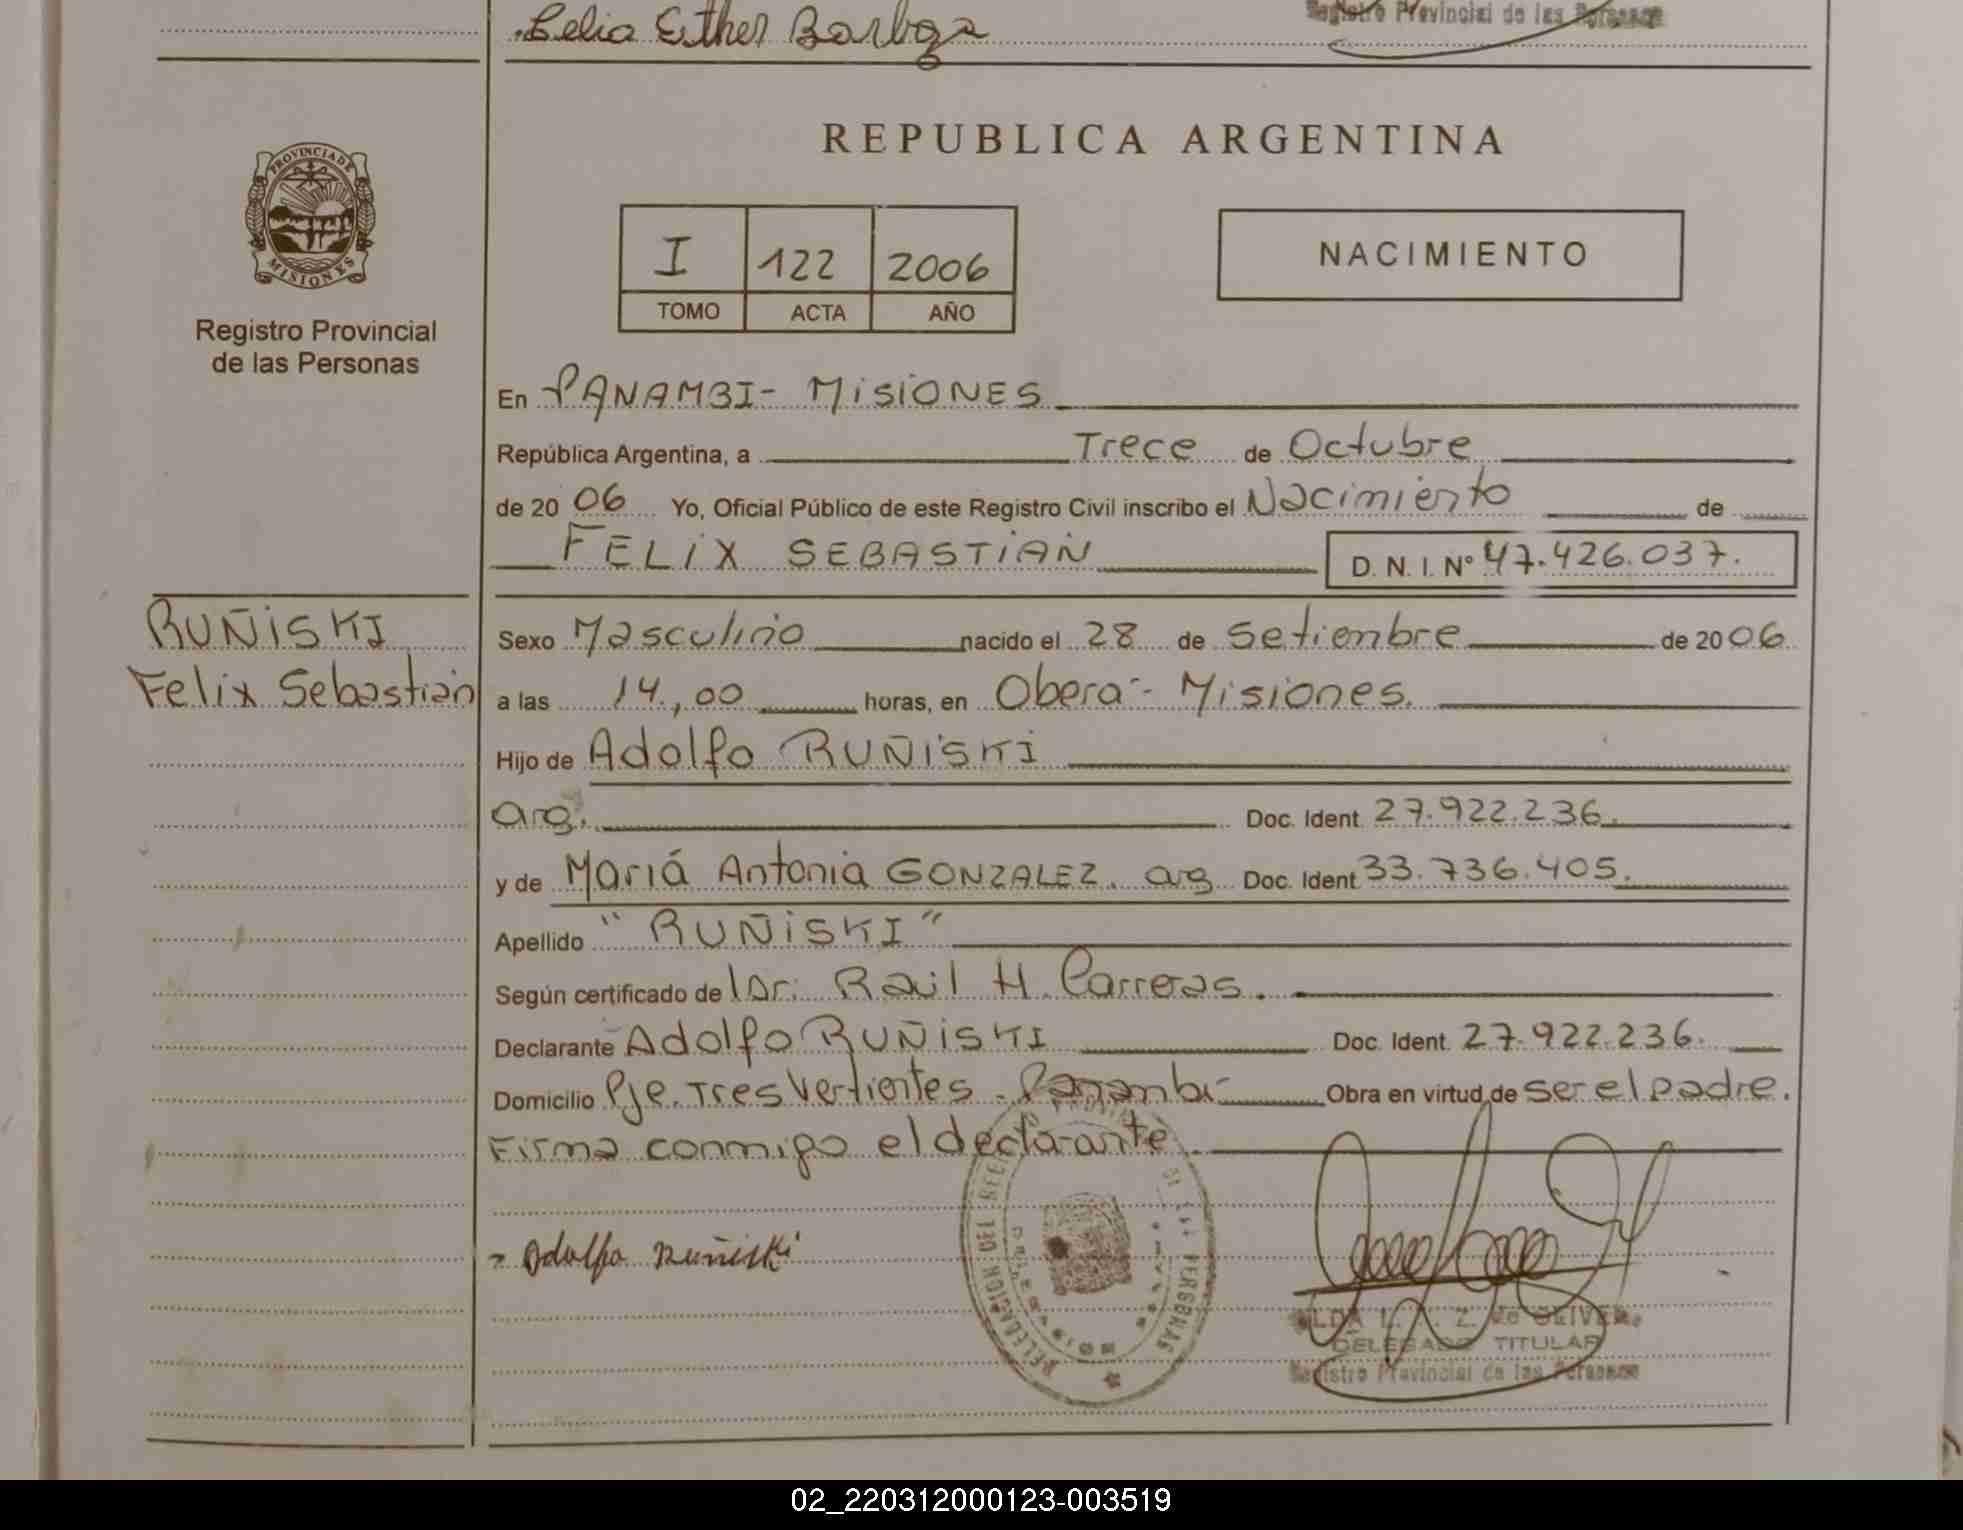 Celia Esther Barboza
Registro Provincial de las Personas
PROVINCIA DE
MISIONES
Registro Provincial
de las Personas
REPUBLICA ARGENTINA
I 122 2006
TOMO ACTA AÑO
NACIMIENTO
En PANAMBI - MiSiONES
República Argentina, a Trece de Octubre
de 20 06 Yo, Oficial Público de este Registro Civil inscribo el Nacimiento de
FELiX SEBASTiAN D. N. I. N° 47.426.037.
RUÑiSKI
Felix Sebastian
Sexo Masculino nacido el 28 de Setiembre de 20 06
a las 14,00 horas, en Oberá - Misiones.
Hijo de Adolfo RUÑiSKi
arg. Doc. Ident. 27.922.236.
y de Mariá Antonia GONZALEZ. arg Doc. Ident. 33.736.405.
Apellido "RUÑiSKI"
Según certificado de l Dr. Raúl H. Carreras.
Declarante Adolfo RUÑiSKI Doc. Ident. 27.922.236.
Domicilio Pje. Tres Vertientes - Panambi - Obra en virtud de ser el padre.
Firma conmigo el declarante.
Adolfo Ruñiski
DELEGACION DEL REG PERSONAS
DELEGADO TITULAR
Registro Provincial de las Personas
02_220312000123-003519